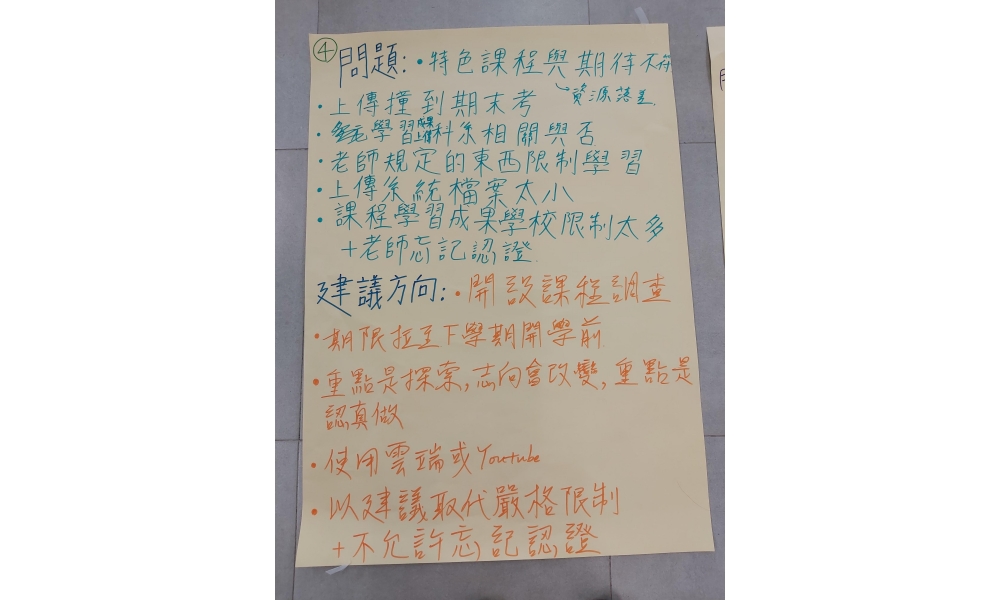 ④ 問題:•特色課程與期待不符
資源落差
•上傳撞到期末考
•多元學習成果上傳科系相關與否
•老師規定的東西限制學習
•上傳系統檔案太小
•課程學習成果學校限制太多
+老師忘記認證
建議方向:•開設課程調查
•期限拉至下學期開學前
•重點是探索,志向會改變,重點是
認真做
•使用雲端或Youtube
•以建議取代嚴格限制
+不允許忘記認證